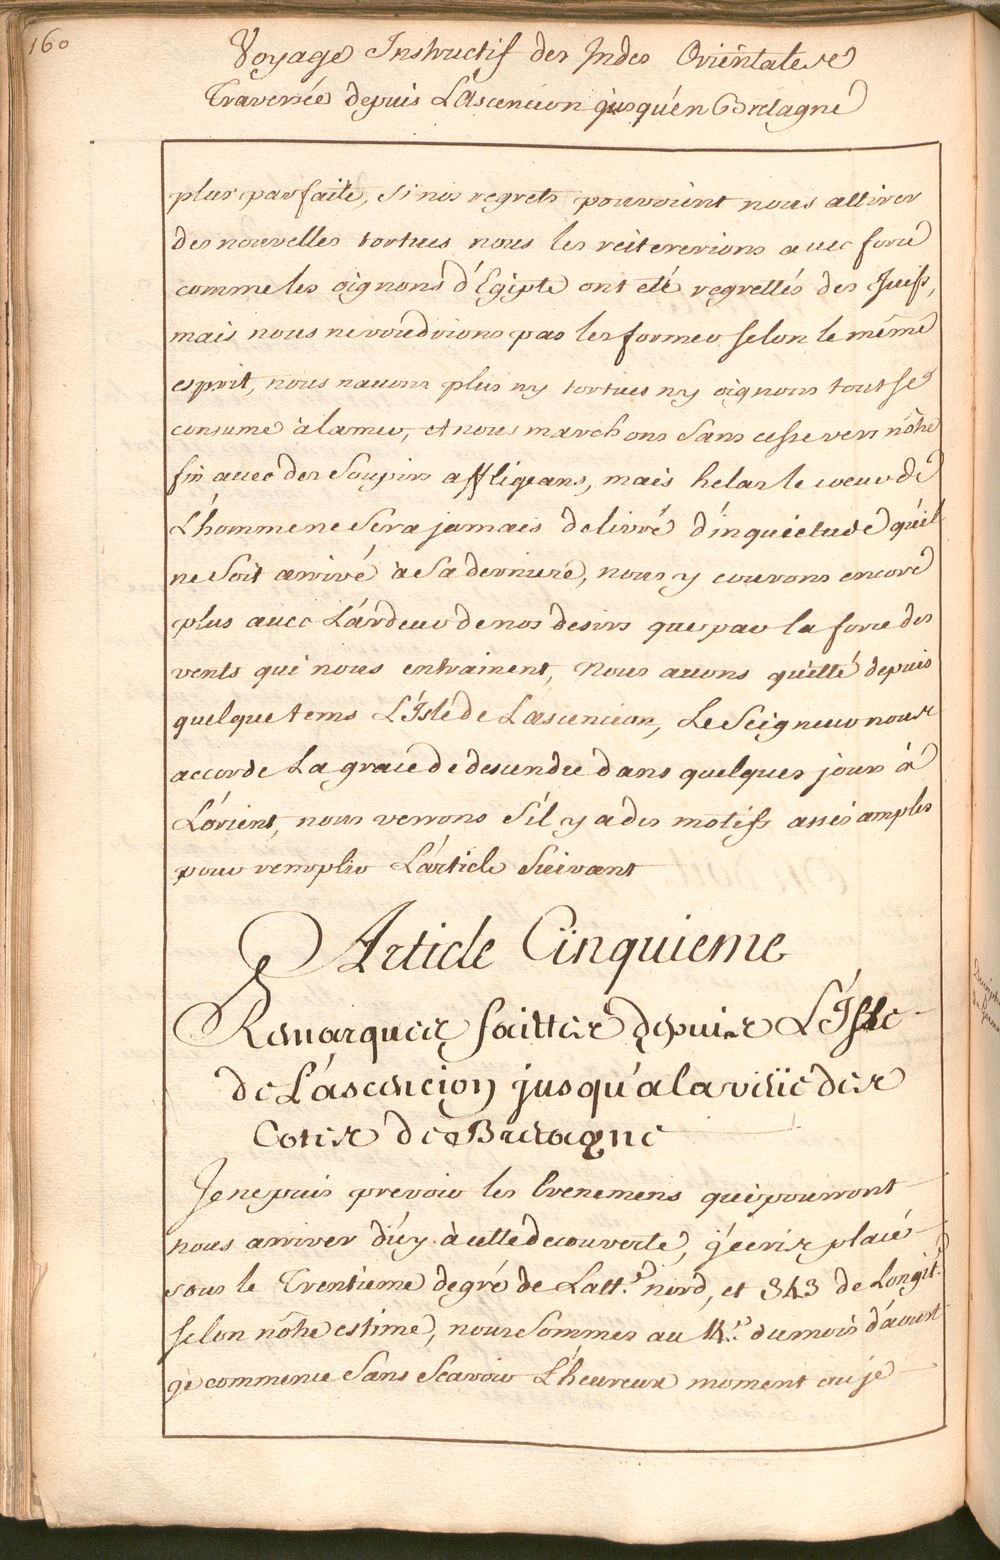 160
Voyage Instructif des Indes Orientales
Traversée depuis L'Ascencion jusqu'en Bretagne
plus parfaite, si nos regrets pouvoient nous attirer
des nouvelles tortues nous les reitererions avec force
comme les oignons d'Egipte ont eté regrettés des Juifs,
mais nous ne voudrions pas les former selon le même
esprit, nous n'avons plus ny tortues ny oignons tout se
consume à la mer, et nous marchons sans cesse vers nôtre
fin avec des soupirs affligeans, mais helas le coeur de
L'homme ne sera jamais delivré d'inquietude qu'il
ne soit arrivé à sa derniere, nous y courons encore
plus avec L'ardeur de nos desirs que par la force des
vents qui nous entrainent, Nous avons quitté depuis
quelque tems L'Isle de L'ascencion, Le Seigneur nous
accorde La grace de descendre dans quelques jours à
L'orient, nous verrons s'il y a des motifs assés amples
pour remplir L'article suivant
Article Cinquieme
Remarques faittes depuis L'Isle
de L'ascencion jusqu'a la veüe des
Cotes de Bretagne
Je ne puis prevoir les Evenemens qui pourront
nous arriver d'icy à cette decouverte, j'ecris placé
sous le Trentieme degré de Latt.e nord, et 343 de Longit.e
selon nôtre estime, nous sommes au 14.e du mois d'aoust
je commence sans scavoir L'heureux moment ou je